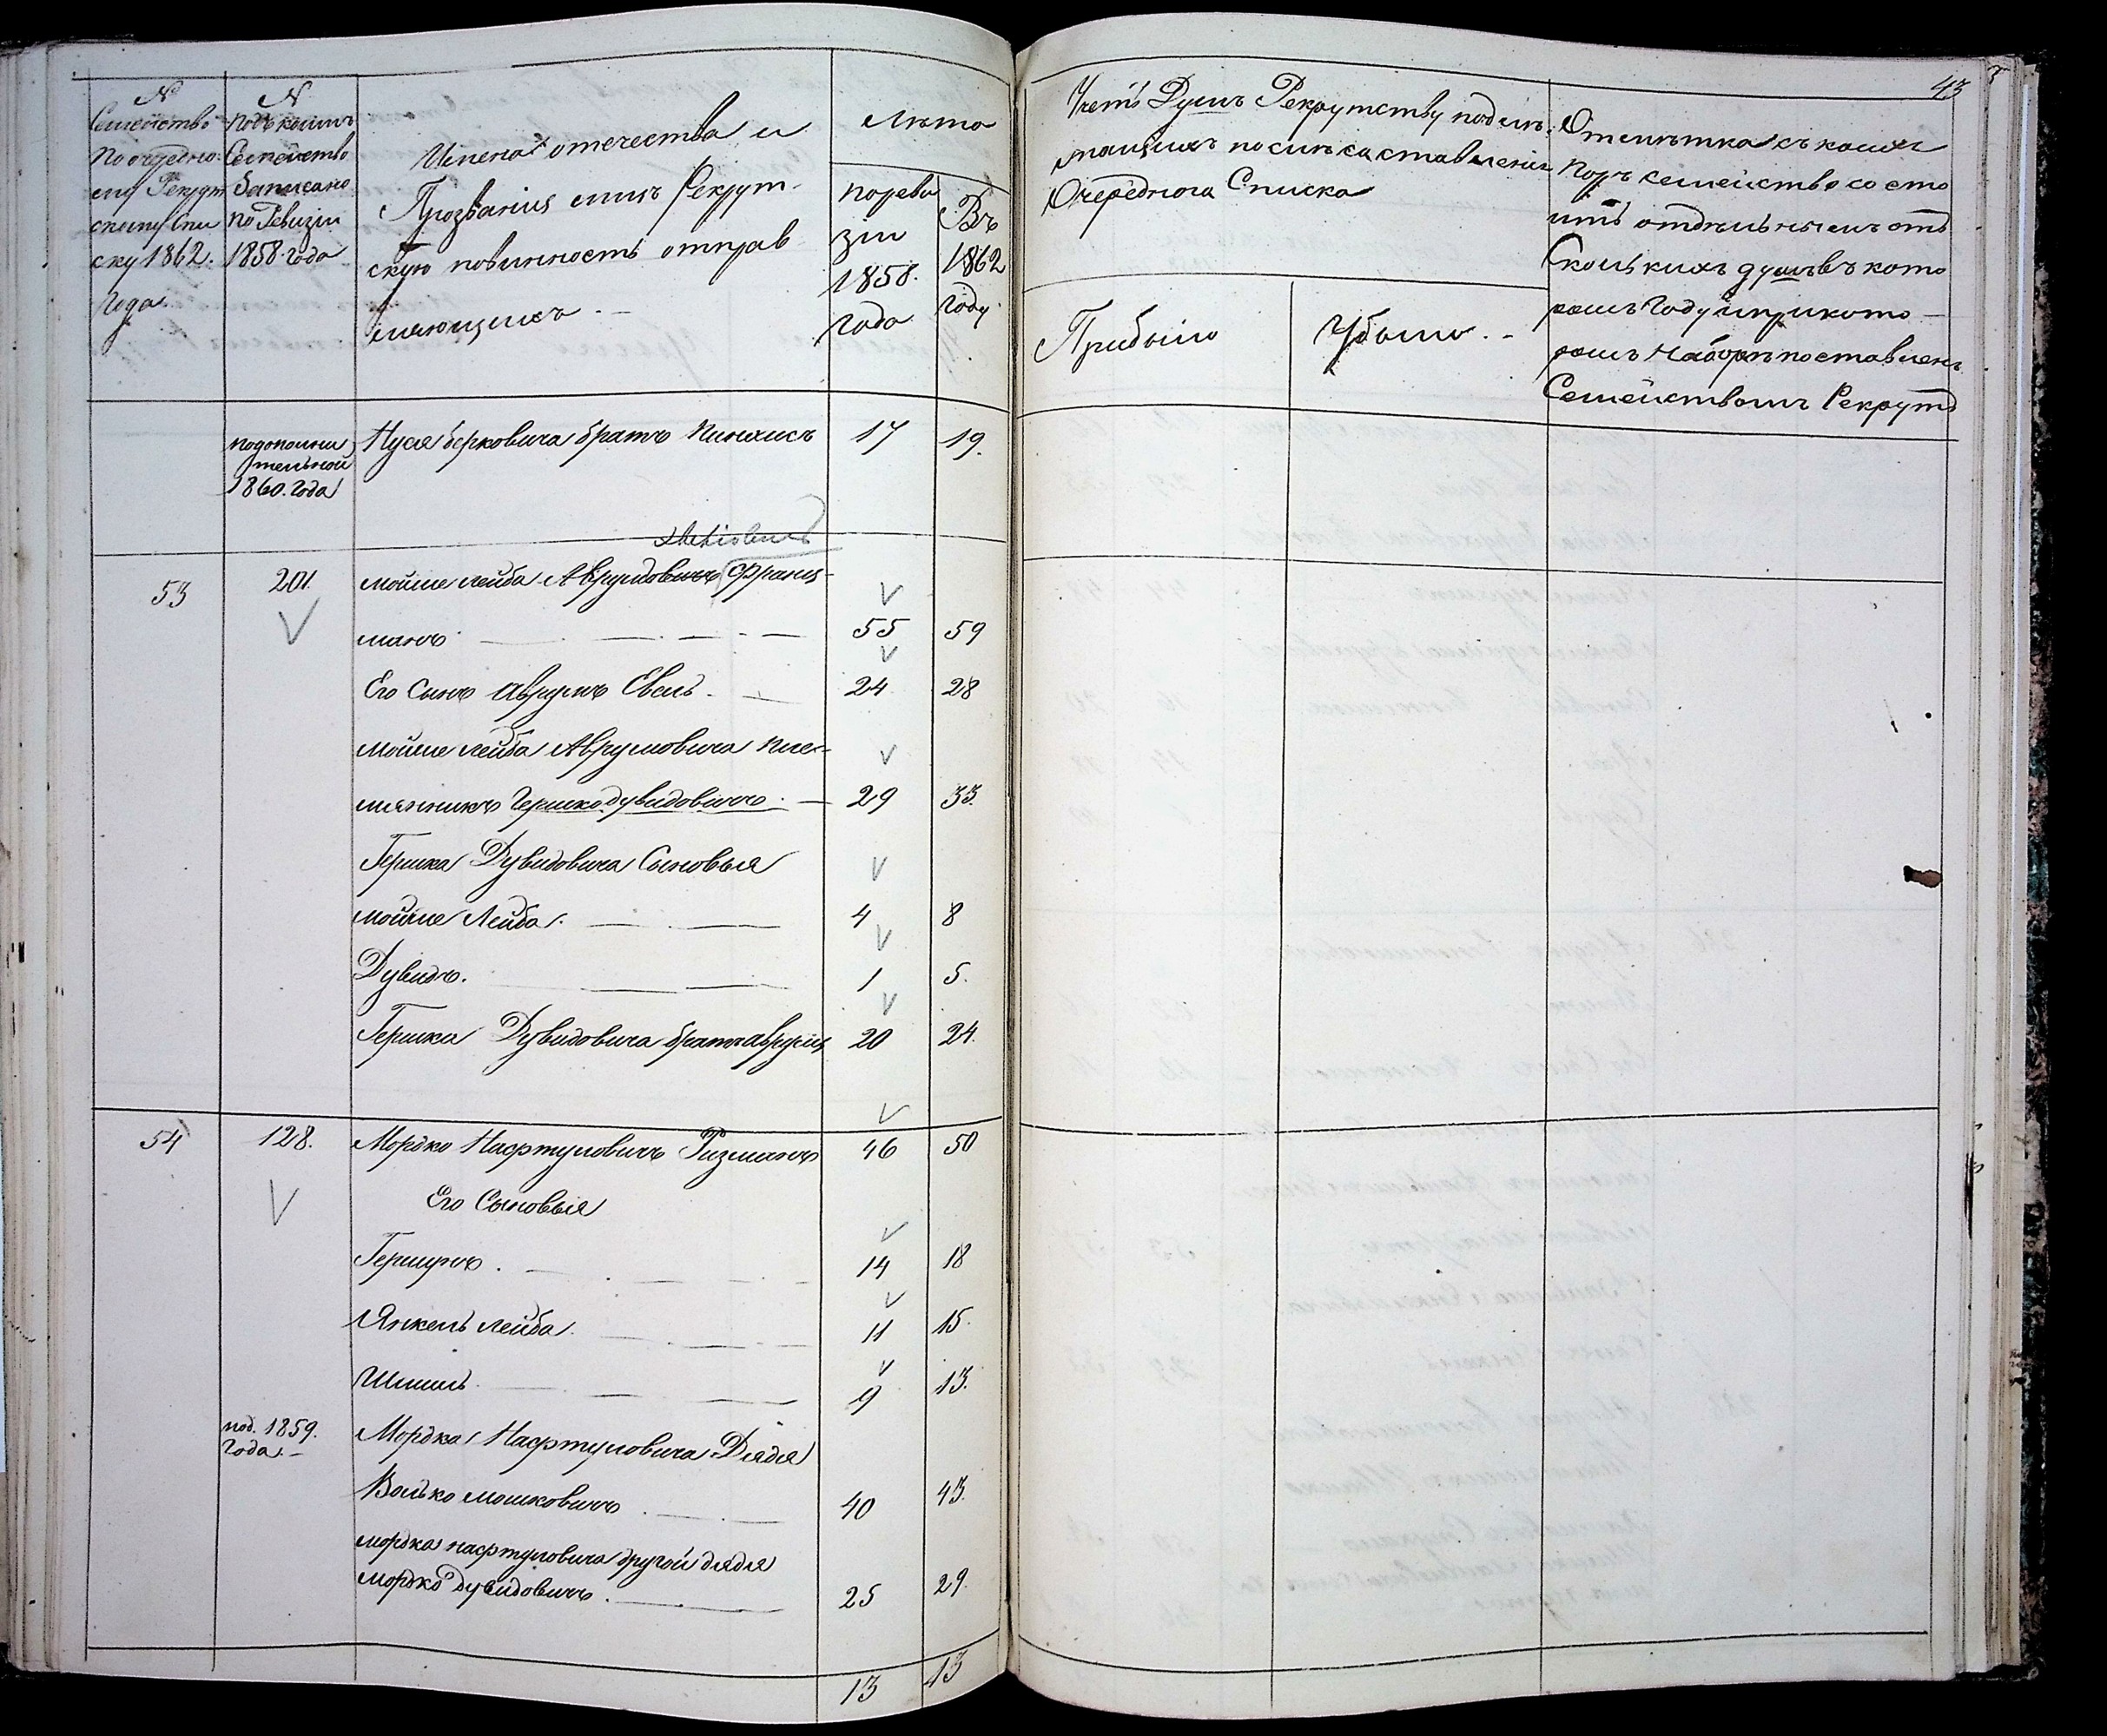 43
№
Семейство
по очередно
му Рекрут
скому Спи
ску 1862.
Года.
№
Подъ коимъ
Семейство
Записано
по Ревизiи
1858 года
Имена отечества и
Прозванiя лицъ Рекрут-
скую повинность отправ
ляющихъ. –
Лѣта
по реви
зiи
1858.
года
Въ
1862
году.
Учетъ Душъ Рекрутству подле-
жащихъ
Очереднога Списка
Прибыло
Убыло. –
Отмѣтка съ коихъ
поръ семейство состо
итъ отдѣльнымъ отъ
Сколькихъ душъ въ кото
ромъ Году и при кото –
ромъ Наборѣ поставленъ
Семействомъ Рекрутъ
по дополни
тельной
1860. года
Нуся берковича братъ Пинхисъ 17 19.
53 201. мойше лейба Аврумовичъ Франц-
манъ 55 59
Его Сынъ Аврумъ Евель. 24 28
мойше лейба Аврумовича пле-
млянникъ Гершко дувидовичъ. 29 33.
Гершка Дувидовича Сыновья
мойше Лейба. 4 8
Дувидъ. 1 5.
Гершка Дувидовича братъ аврумъ 20 24.
54 128. Мордко Нафтуловичъ Ризманъ 46 50
Его Сыновья
Гершунъ. 14 18
Янкель лейба. 11 15.
Шмиль 9 13.
под. 1859.
года. –
Мордка Нафтуловича Дядя
Волько мошковичъ 40 43.
мордка нафтуловича другой дядя
мордко дувидовичъ. 25 29.
13 13